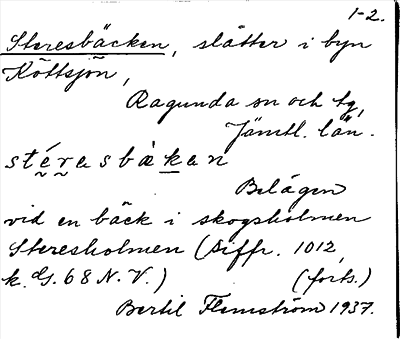 1-2.
Steresbäcken, slåtter i byn
Köttsjön,
Ragunda sn och tg,
Jämtl. län.
stérasbækan
Belägen
vid en bäck i skogsholmen
Steresholmen (Siffr. 1012,
k. G. 68 N.V.) (forts.)
Bertil Flemström 1937.